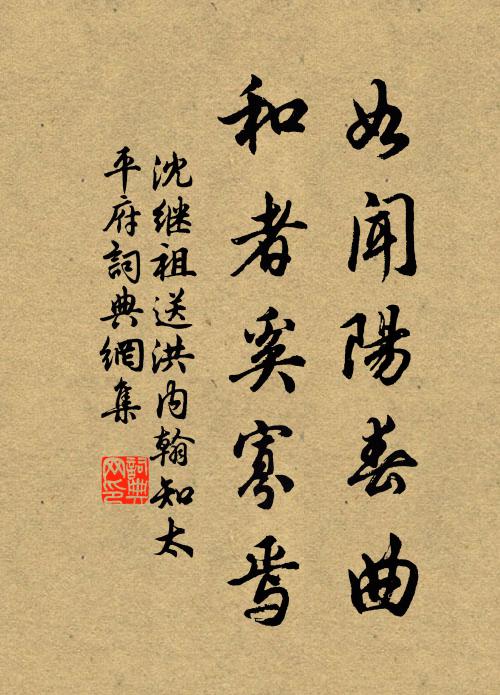 如聞陽春曲
和者奚寡焉
沈继祖送洪內翰知太
平府詞典網集
詞典
网印